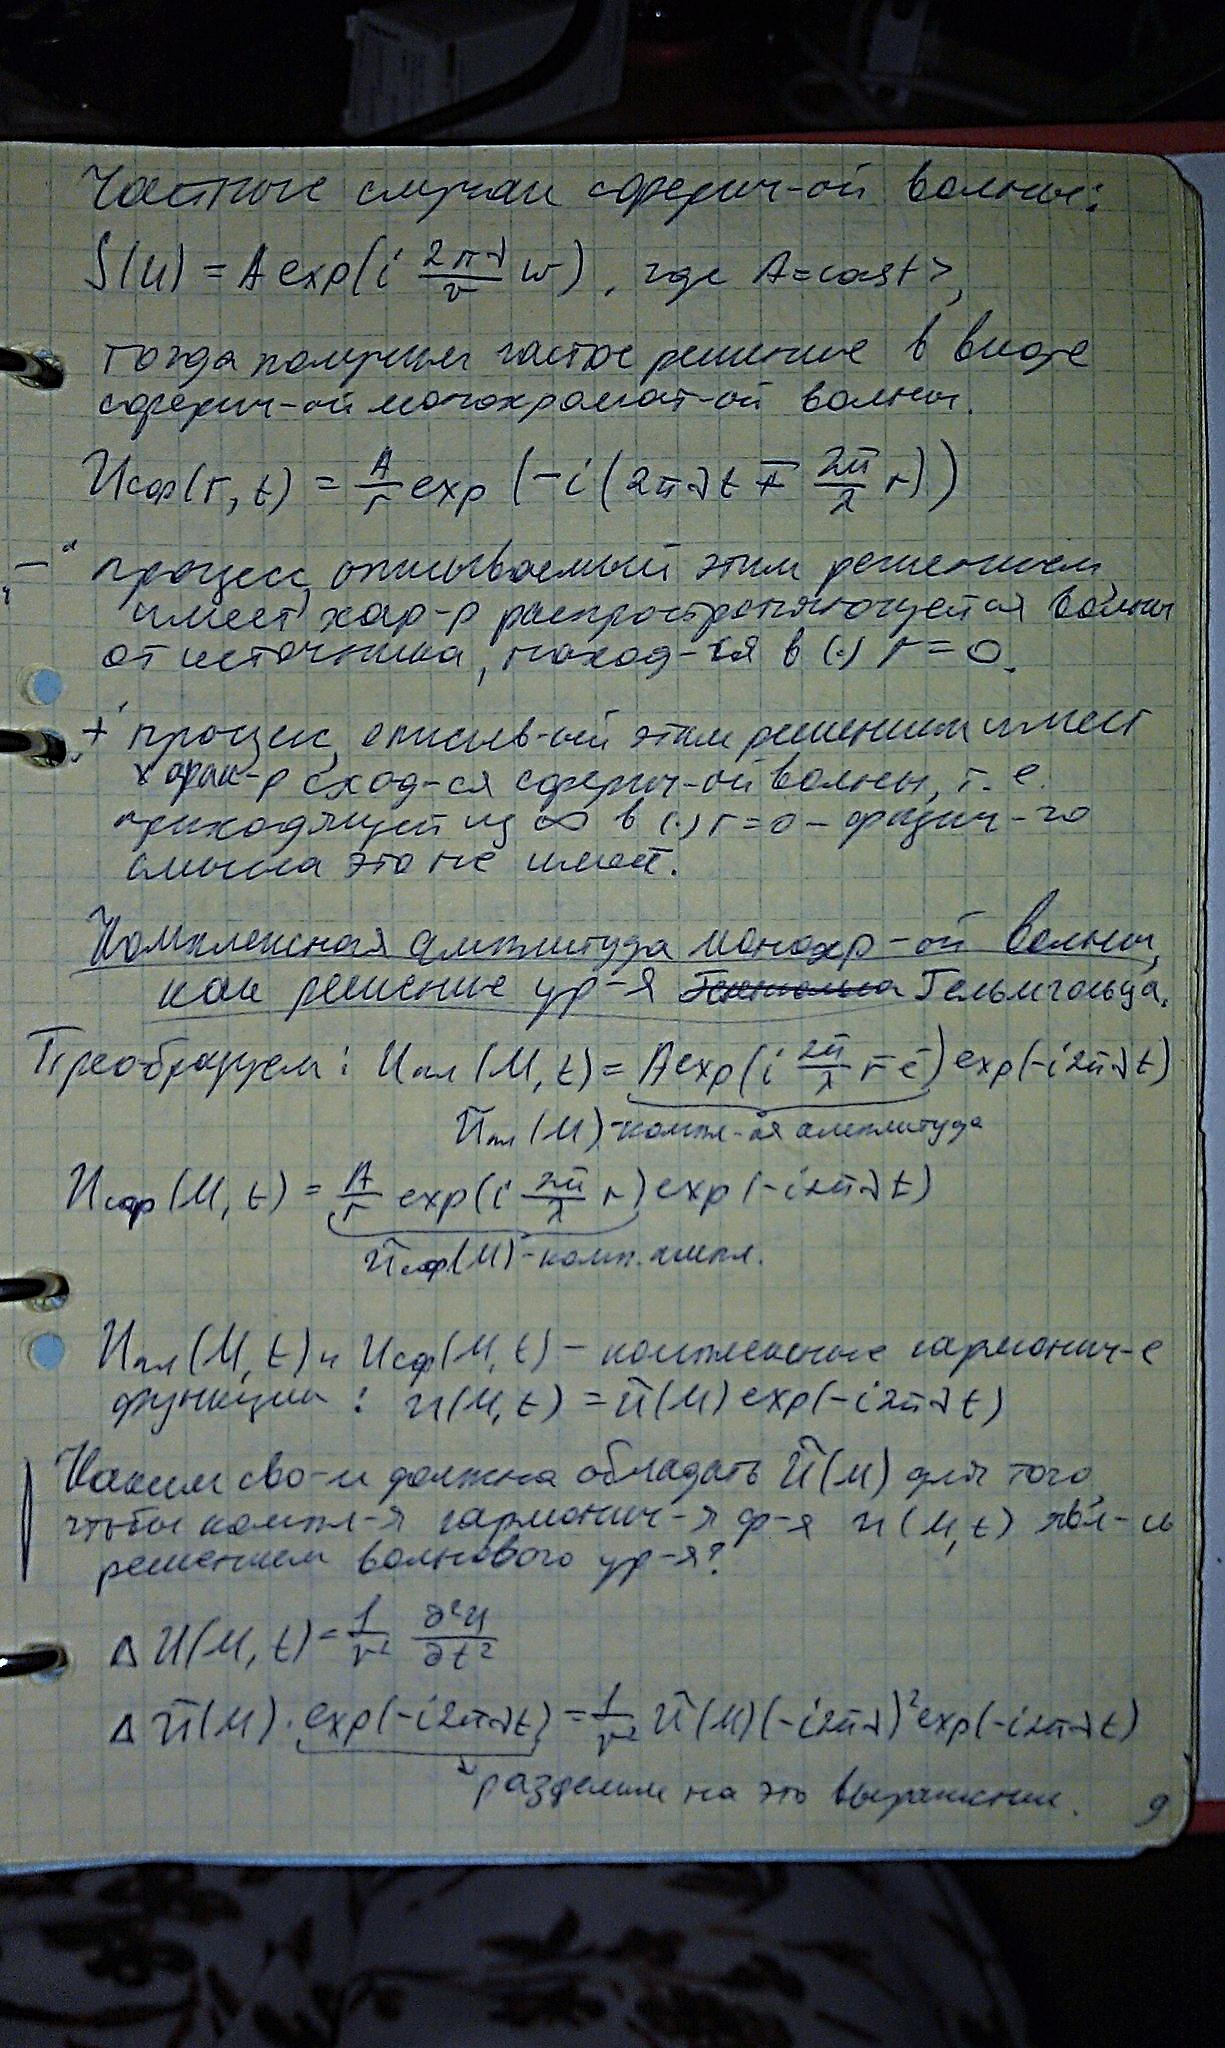 Частные случаи сферич-ой волны:
f(u) = A exp(i 2πν/v w), где A = const >,
тогда получим частое решение в виде
сферич-ой монохромат-ой волны.
Uсф(r, t) = A/r exp(-i(2πνt ∓ 2π/λ r))
"-" процесс, описываемый этим решением,
имеет хар-р распространяющейся волны
от источника, наход-ся в (·) r = 0.
"+" процесс, описыв-ый этим решением имеет
харак-р сход-ся сферич-ой волны, т. е.
приходящей из ∞ в (·) r = 0 – физич-го
смысла это не имеет.
Комплексная амплитуда монохр-ой волны,
как решение ур-я Гельмгольца.
Преобразуем: Uпл(M, t) = A exp(i 2π/λ r̄ ē) exp(-i2πνt)
Ũпл(M) - компл-ая амплитуда
Uсф(M, t) = A/r exp(i 2π/λ r) exp(-i2πνt)
Ũсф(M) - комп. ампл.
Uпл(M, t) и Uсф(M, t) – комплексные гармонич-е
функции: u(M, t) = ũ(M) exp(-i2πνt)
Каким сво-м должна обладать Ũ(M) для того,
чтобы компл-я гармонич-я ф-я u(M, t) явл-сь
решением волнового ур-я?
Δ U(M, t) = 1/v² ∂²u/∂t²
Δ Ũ(M) · exp(-i2πνt) = 1/v² Ũ(M)(-i2πν)² exp(-i2πνt)
разделим на это выражение.
9